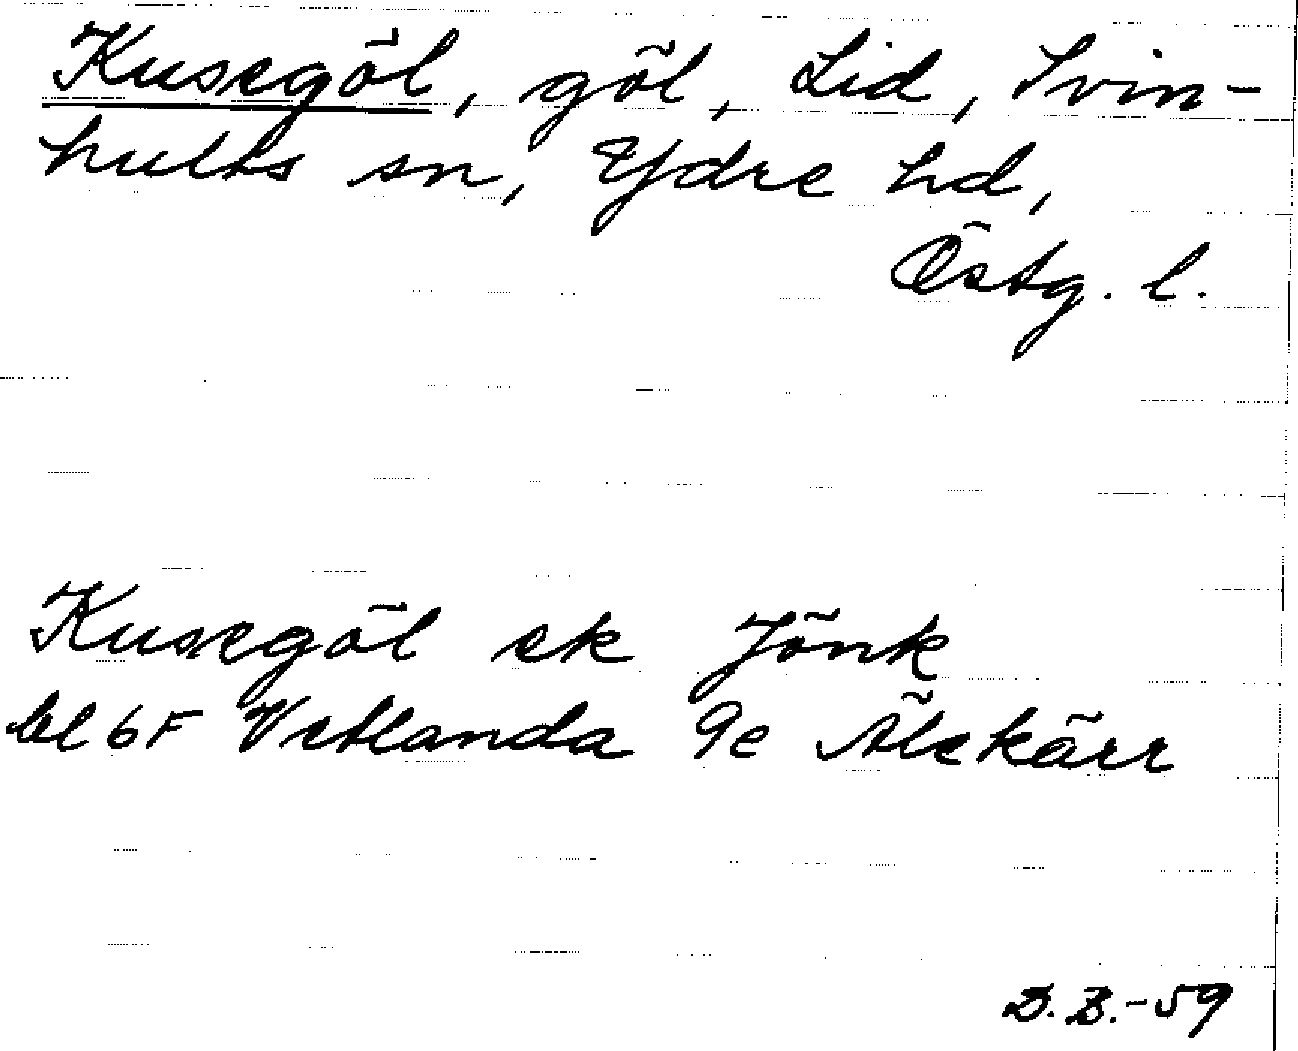 Kusegöl, göl, Lid, Svin-
hults sn, Ydre hd,
Östg. l.
Kusegöl ek Jönk
bl 6F Vetlanda 9e Älekärr
B.B.-59